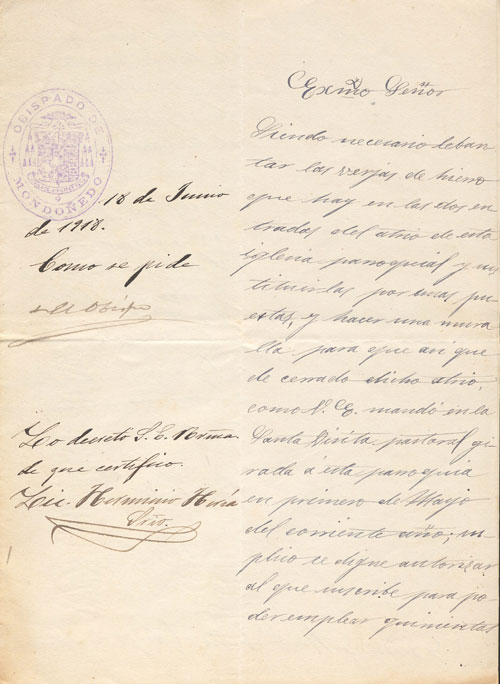 OBISPADO DE
MONDOÑEDO
18 de Junio
de 1918.
Como se pide
+ El Obispo
Lo decretó S. E. Rvma.
de que certifico.
Lic. Herminio
Srio.
Exmo Señor
Siendo necesario leban
tar las verjas de hierro
que hay en las dos en
tradas del atrio de esta
iglesia parroquial y sus
tituirlas por unas pu
estas, y hacer una mura
lla para que asi que
de cerrado dicho atrio,
como V. E. mandó en la
Santa Visita pastoral gi
rada á esta parroquia
en primero de Mayo
del corriente año; su
plico se digne autorizar
al que suscribe para po
der emplear quinientas